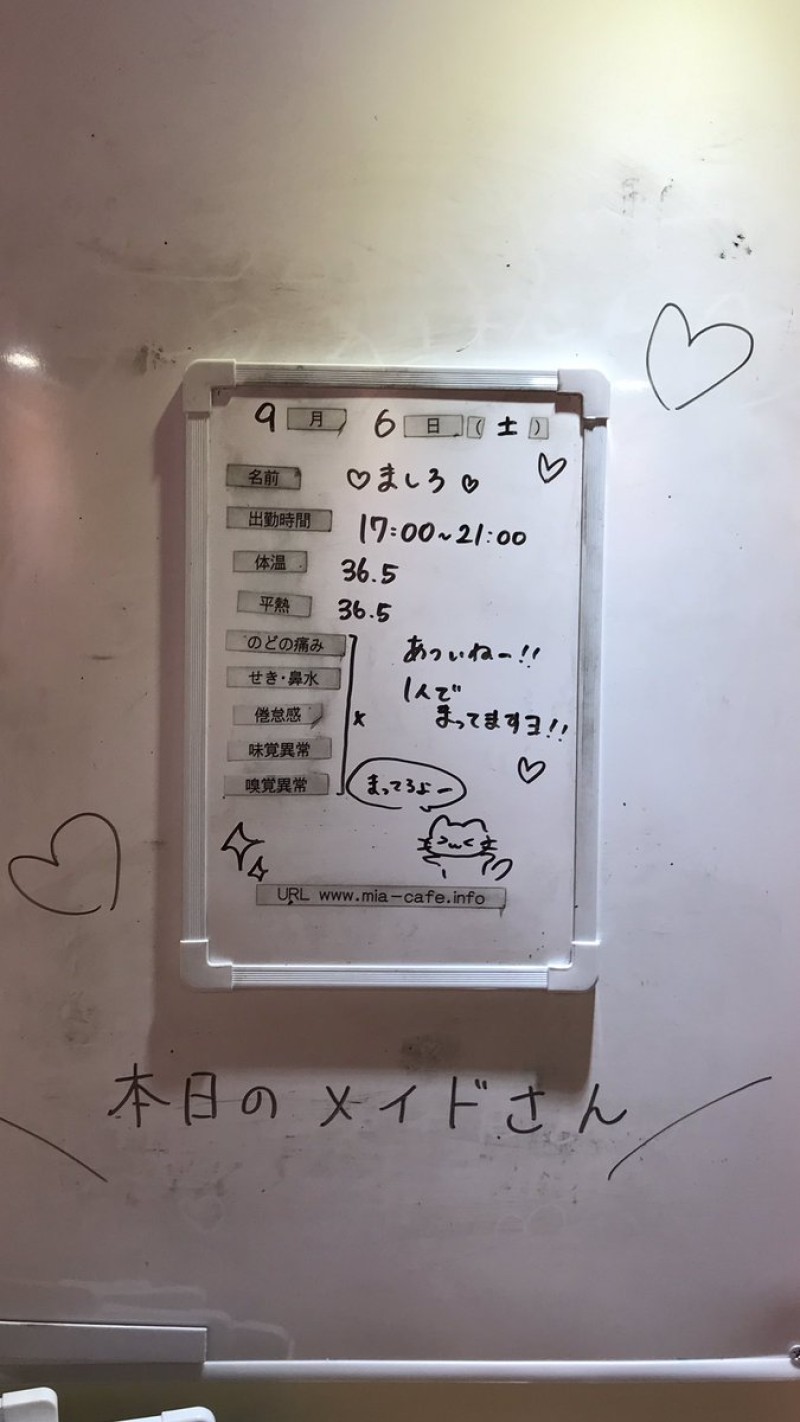 9月 6日(土)
名前 ♡ましろ♡
出勤時間 17:00~21:00
体温 36.5
平熱 36.5
のどの痛み
せき・鼻水
倦怠感 x
味覚異常
嗅覚異常
あついねー!!
1人で
まってますヨ!!
まってろよー
URL www.mia-cafe.info
本日のメイドさん